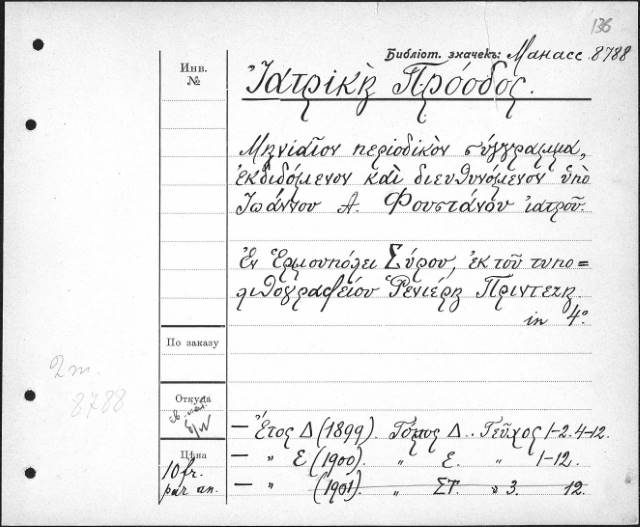 136
Библіот. значекъ: Манасс 8788
Инв. №
Ἰατρικὴ Πρόοδος.
Μηνιαῖον περιοδικὸν σύγγραμμα,
ἐκδιδόμενον καὶ διευθυνόμενον ὑπὸ
Ἰωάννου Α. Φουστάνου ἰατροῦ.
Ἐν Ἑρμουπόλει Σύρου, ἐκ τοῦ τυπο=
λιθογραφείου Ῥενιέρη Πρίντεζη.
in 4º
По заказу
2 т.
8788
Откуда
— Ἔτος Δ (1899). Τόμος Δ. Τεῦχος 1-2. 4-12.
Цѣна
— „ Ε (1900) „ Ε. „ 1-12.
10 fr.
par an.
— „ (1901) „ ΣΤ. „ 3. 12.